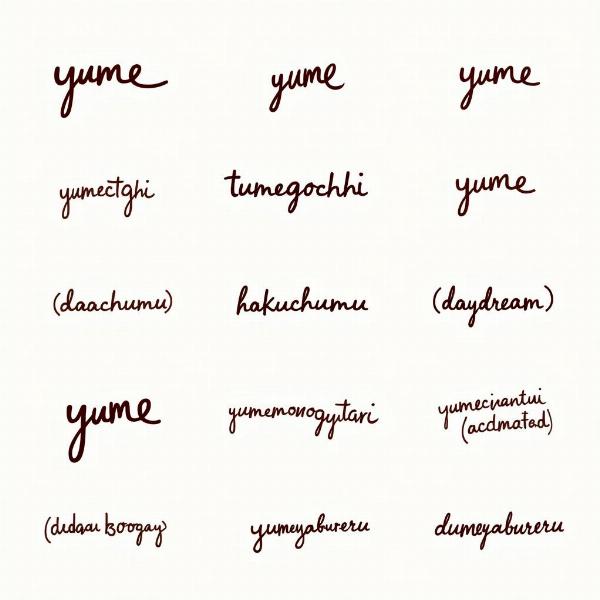 yume yume yume
yumectghi tumegochhi yume
(daachumu) hakuchumu (daydream)
yume yumemonogytari yumecnantui
(acdmatad)
(dudqau boogay) yumeyabureru dumeyabureru